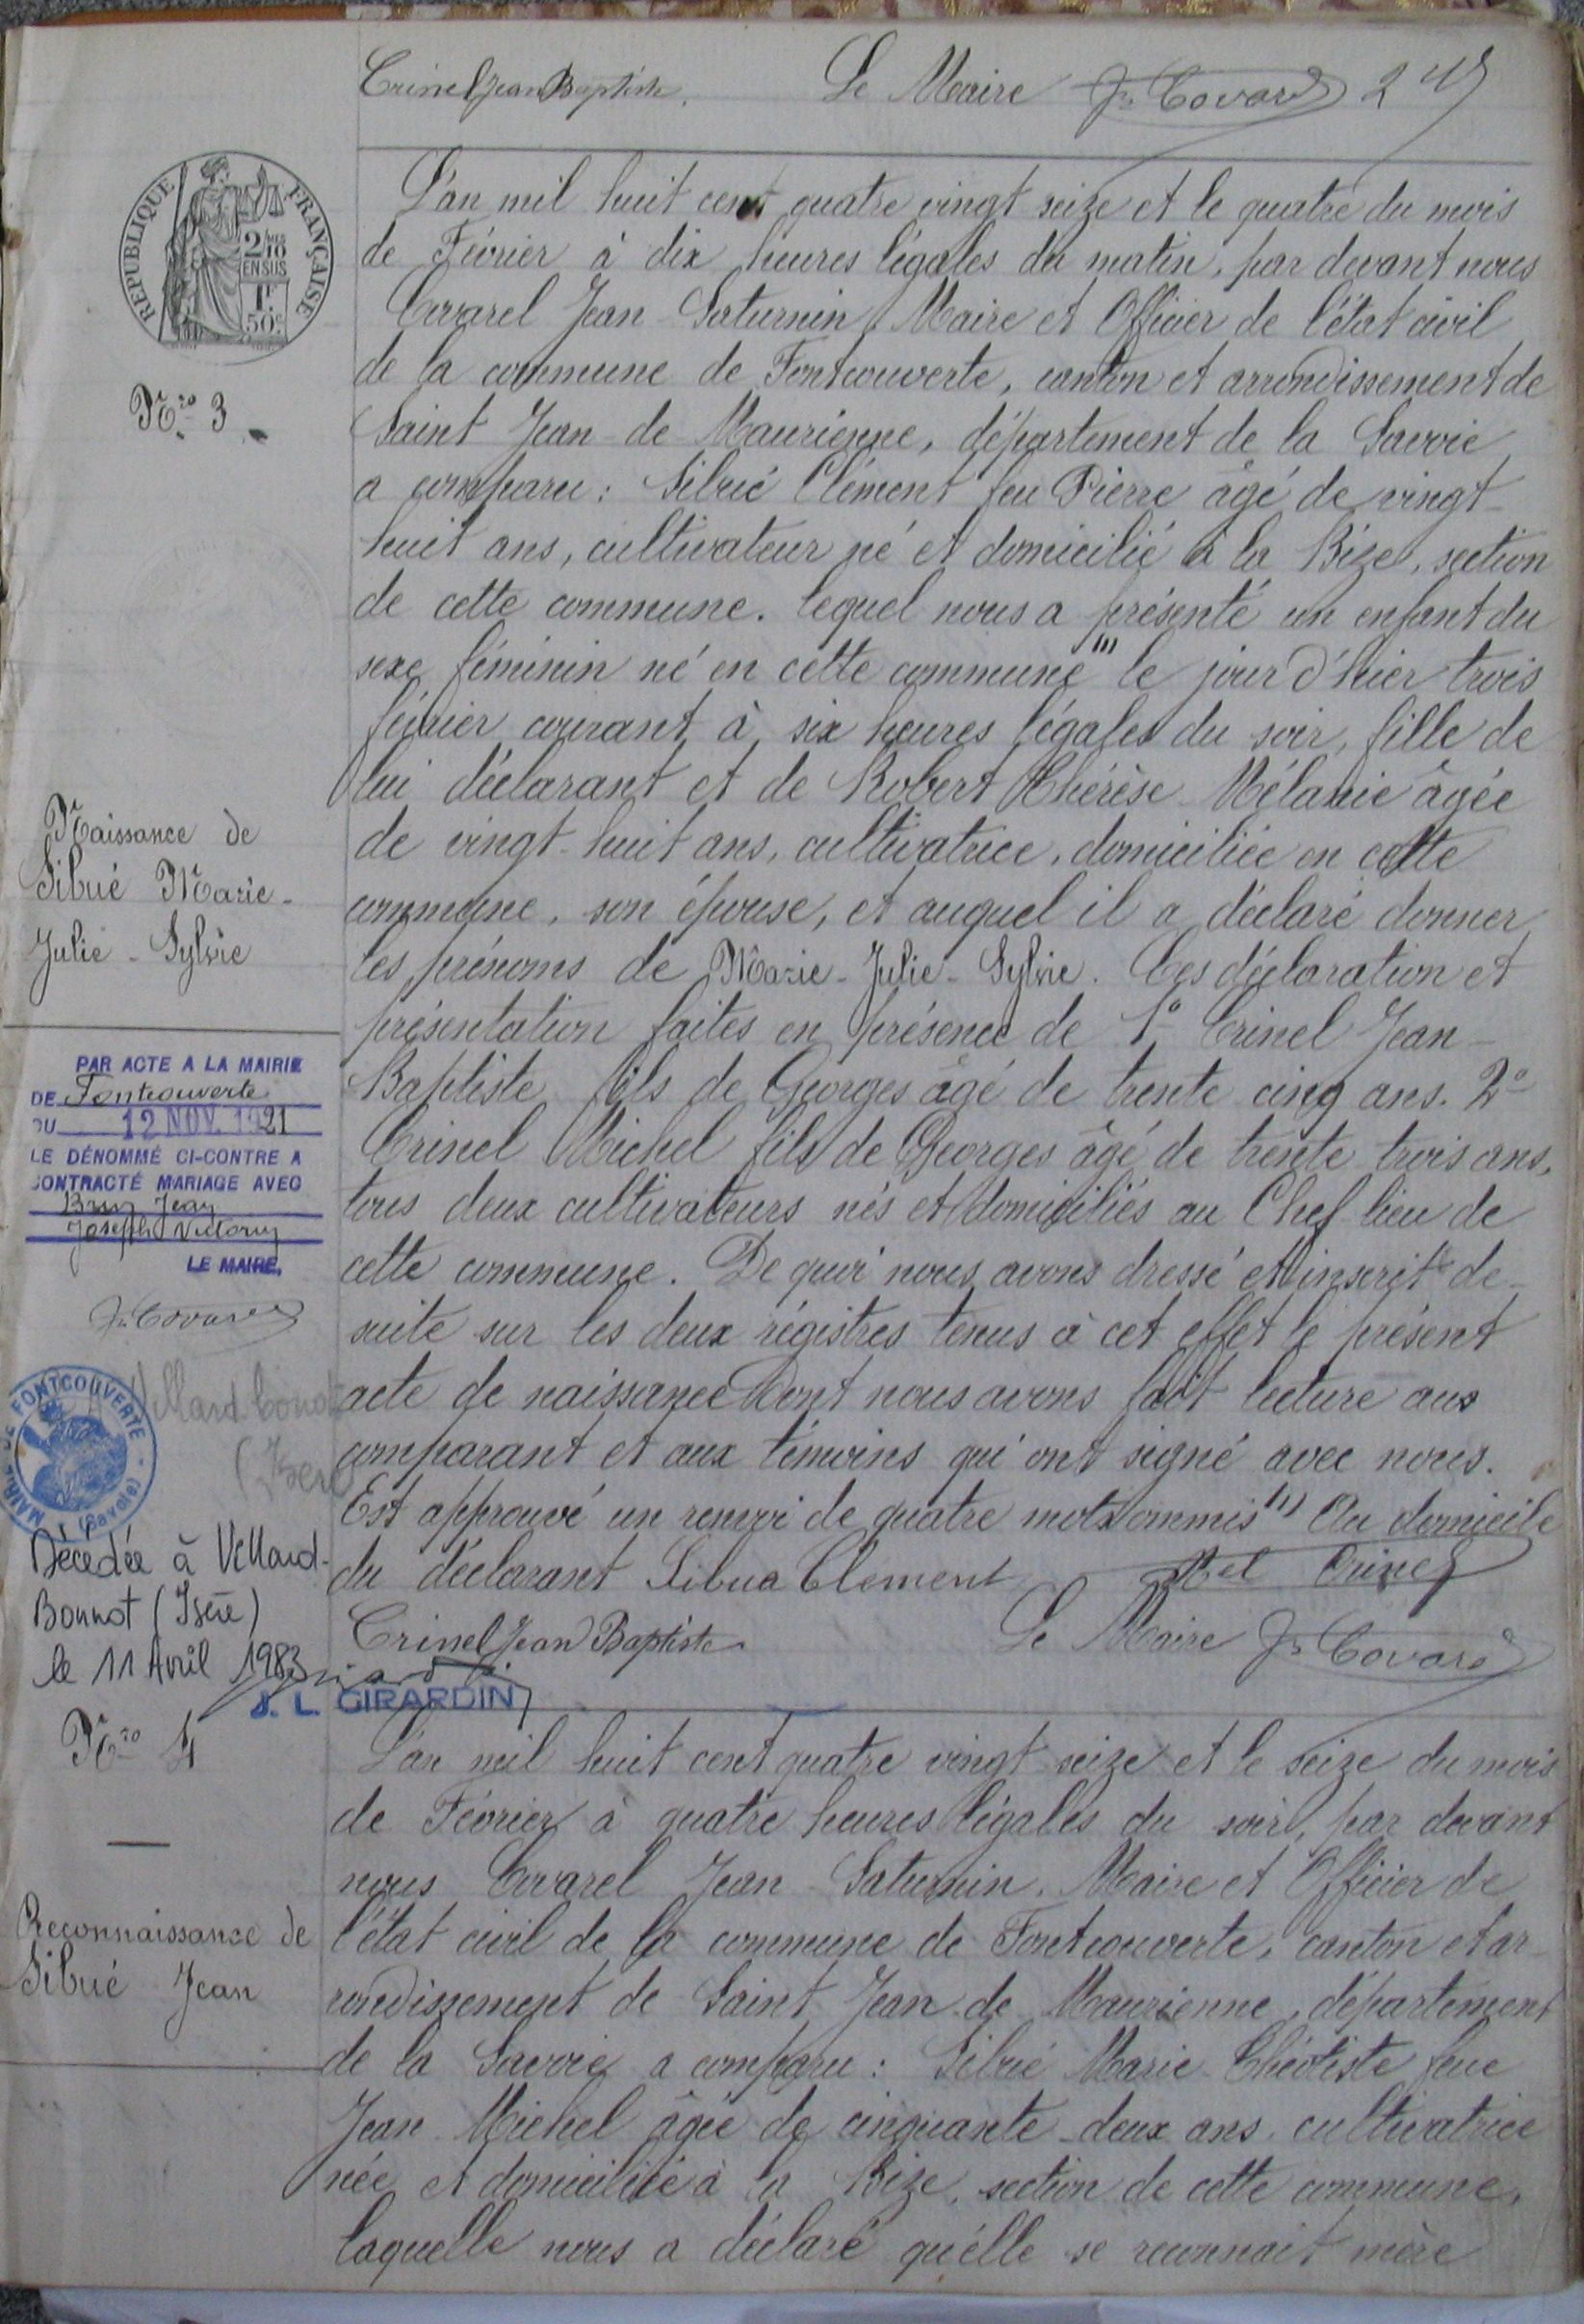 Crinel Jean Baptiste. Le Maire Jn Covarel 2
REPUBLIQUE FRANÇAISE
2/10
EN SUS
1F
50c
L'an mil huit cent quatre vingt seize et le quatre du mois
de Février à dix heures légales du matin, par devant nous
Covarel Jean Saturnin, Maire et Officier de l'état civil
de la commune de Fontcouverte, canton et arrondissement de
Nro 3
Saint Jean de Maurienne, département de la Savoie
a comparu : Sibué Clément feu Pierre âgé de vingt-
huit ans, cultivateur né et domicilié à la Bize, section
de cette commune. lequel nous a présenté un enfant du
sexe féminin né en cette commune (1) le jour d'hier trois
février courant à six heures légales du soir, fille de
lui déclarant et de Robert Thérèse Mélanie âgée
de vingt-huit ans, cultivatrice, domiciliée en cette
commune, son épouse, et auquel il a déclaré donner
les prénoms de Marie-Julie-Sylvie. Ces déclaration et
présentation faites en présence de 1° Crinel Jean-
Baptiste fils de Georges âgé de trente cinq ans. 2°
Crinel Michel fils de Georges âgé de trente trois ans,
tous deux cultivateurs nés et domiciliés au Chef-lieu de
cette commune. De quoi nous avons dressé et inscrit de
suite sur les deux régistres tenus à cet effet le présent
acte de naissance dont nous avons fait lecture aux
comparant et aux témoins qui ont signé avec nous.
Est approuvé un renvoi de quatre mots ommis (1) Au domicile
du déclarant Sibué Clement Mel Crinel
Crinel Jean Baptiste Le Maire Jn Covarel
Naissance de
Sibué Marie-
Julie-Sylvie
PAR ACTE A LA MAIRIE
DE Fontcouverte
DU 12 NOV. 1921
LE DÉNOMMÉ CI-CONTRE A
CONTRACTÉ MARIAGE AVEC
Brun Jean
Joseph Victorin
LE MAIRE,
Jn Covarel
MAIRIE DE FONTCOUVERTE (Savoie)
Villard Bonnot
(Isère
Décédée à Villard-
Bonnot (Isère)
le 11 Avril 1983
J. L. GIRARDIN
Nro 4
Reconnaissance de
Sibué Jean
L'an mil huit cent quatre vingt seize et le seize du mois
de Février à quatre heures légales du soir, par devant
nous Covarel Jean-Saturnin, Maire et Officier de
l'état civil de la commune de Fontcouverte, canton et ar-
rondissement de Saint Jean de Maurienne, département
de la Savoie a comparu : Sibué Marie Théotiste feue
Jean-Michel âgée de cinquante-deux ans, cultivatrice
née et domiciliée à la Bize, section de cette commune,
laquelle nous a déclaré qu'élle se reconnait mère